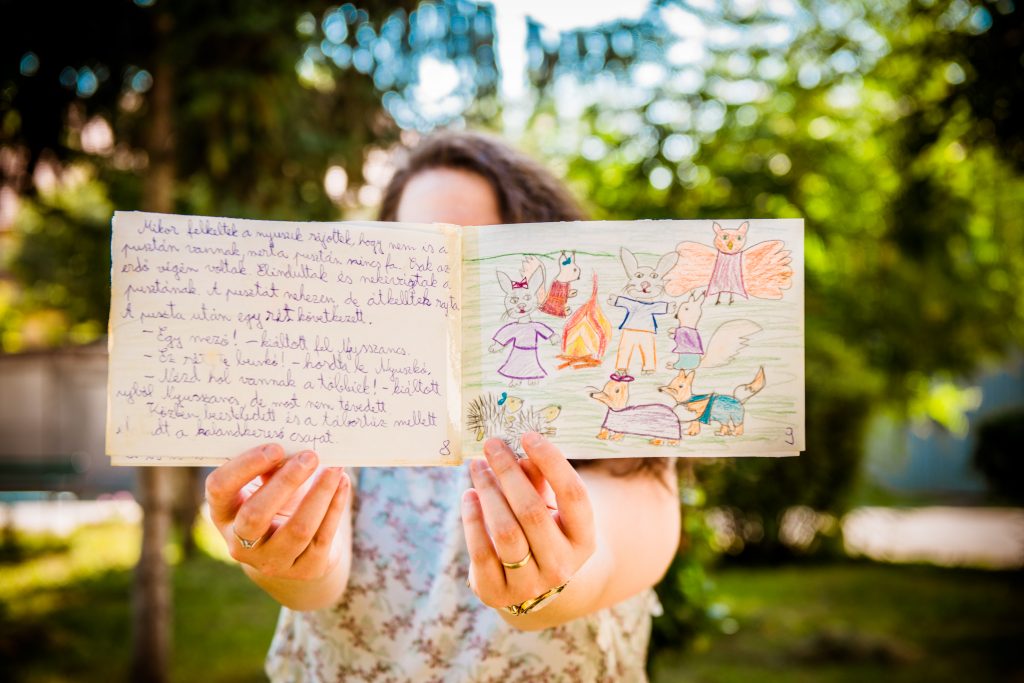 Mikor felkeltek a nyuszik rájöttek, hogy nem is a
pusztán vannak, mert a pusztán nincs fa. Csak az
erdő végén voltak. Elindultak és nekivágtak a
pusztának. A pusztát nehezen, de átkeltek rajta
A puszta után egy rét következett.
– Egy mező! – kiáltott fel Nyusszancs.
– Ez rét te bunkó! – hordta le Nyuszkó,
– Nézd hol vannak a többiek! – kiáltott
újból Nyusszancs, de most nem tévedett
Közben besötétedett és a tábortűz mellett
a kalandkereső csapat.
8
9